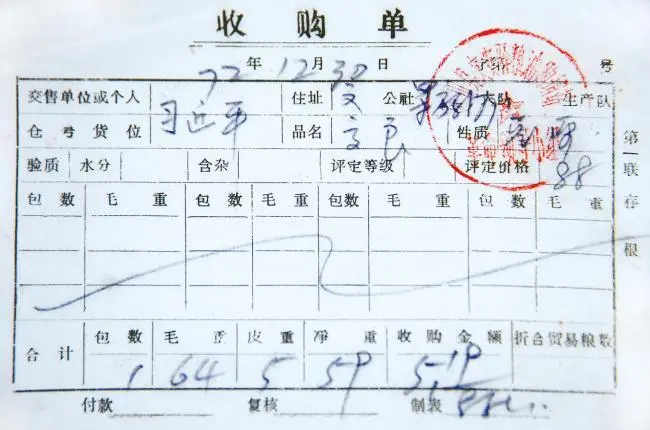 收购单
72 年 12 月 30 日 字第 号
交售单位或个人 习近平 住址 文 公社 大队 生产队
仓号货位 品名 性质
验质 水分 含杂 评定等级 评定价格 88
包数 毛重 包数 毛重 包数 毛重 包数 毛重
合计 包数 毛重 皮重 净重 收购金额 折合贸易粮数
1 64 5 59 5,19
付款 复核 制表
第 联 存 根